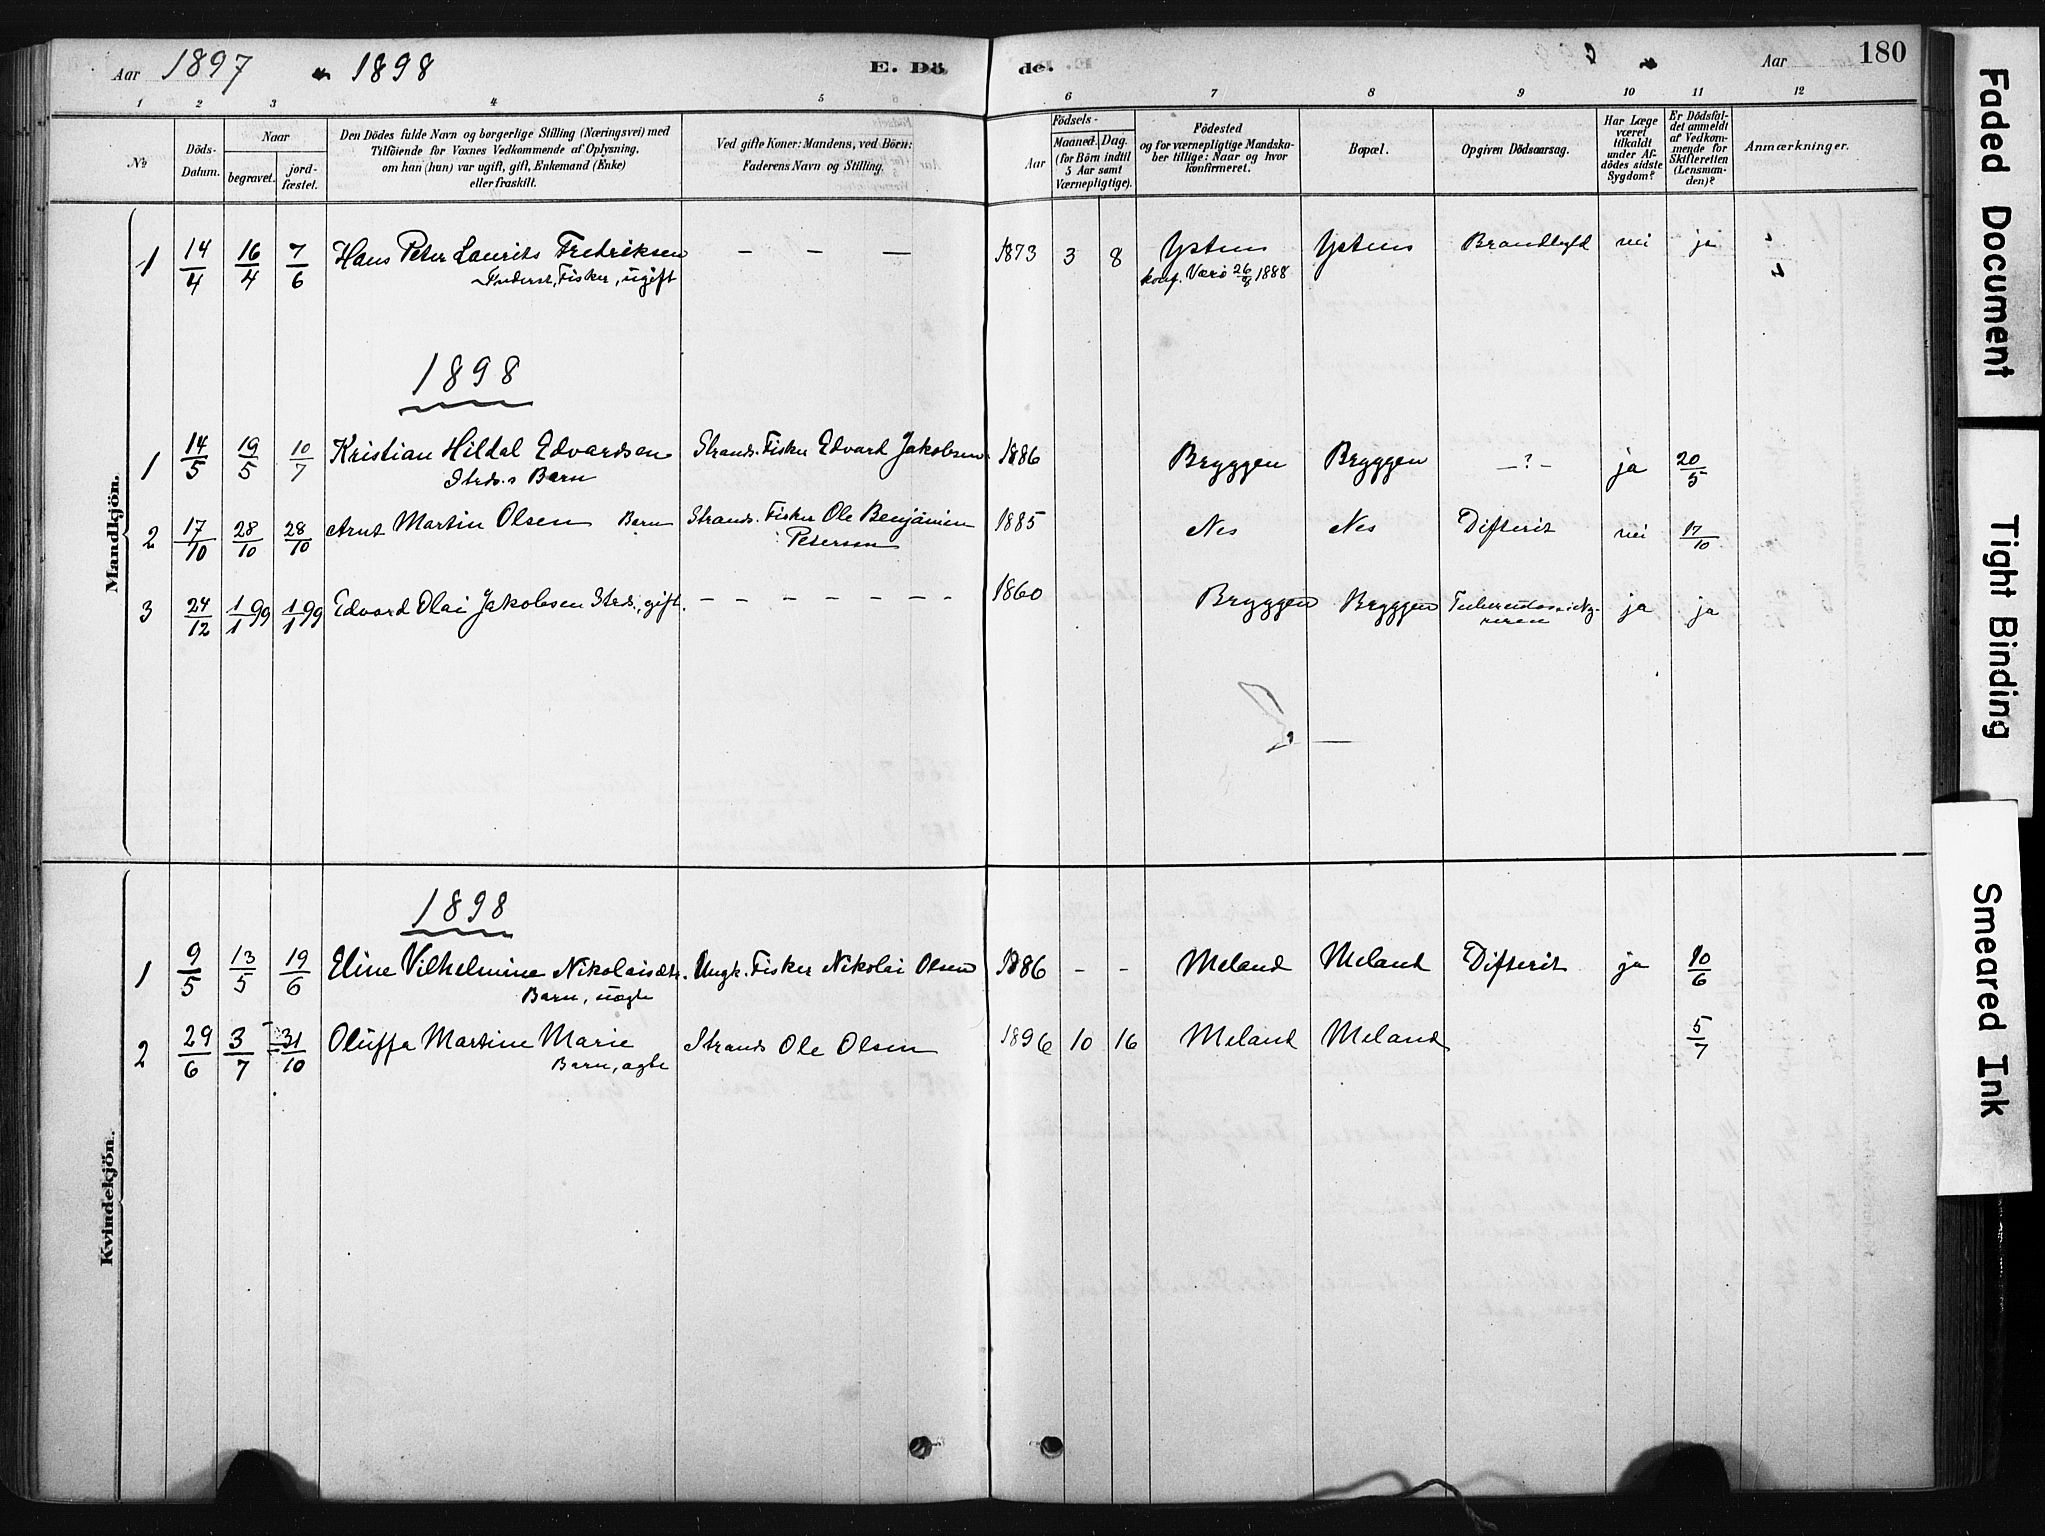 Aar 1897 1898 E. Dö de. Aar 180
1 2 3 4 5 6 6 7 8 9 10 11 12
No
Döds-
Datum.
Naar
begravet.
jord-
fæstet.
Den Dödes fulde Navn og borgerlige Stilling (Næringsvei) med
Tilföiende for Voxnes Vedkommende af Oplysning,
om han (hun) var ugift, gift, Enkemand (Enke)
eller fraskilt.
Ved gifte Koner: Mandens, ved Börn:
Faderens Navn og Stilling.
Födsels-
Aar
Maaned. Dag.
(for Börn indtil
5 Aar samt
Værnepligtige).
Födested
og for værnepligtige Mandska-
ber tillige: Naar og hvor
konfirmeret.
Bopæl.
Opgiven Dödsaarsag.
Har Læge
været
tilkaldt
under Af-
dödes sidste
Sygdom?
Er Dödsfal-
det anmeldt
af Vedkom-
mende for
Skifteretten
(Lensman-
den)?
Anmærkninger.
Mandkjön.
1 14/4 16/4 7/6 Hans Peter Laurits Fredriksen — — — 1873 3 8 Brandbyld nei ja
Fisker, ugift konf. Værö 1888
1898
1 14/5 19/5 10/7 Kristian Hildal Edvardsen Strands. Fisker Edvard Jakobsen 1886 Bryggen Bryggen —?— ja 20/5
Strds.s Barn
2 17/10 28/10 28/10 Arnt Martin Olsen Barn Strands. Fisker Ole Benjamin 1885 Nes Nes Difterit nei 17/10
Petersen
3 24/12 1/1 99 1/1 99 Edvard Olai Jakobsen Strds., gift. — — — — — — — 1860 Bryggen Bryggen ja ja
Kvindekjön.
1898
1 9/5 13/5 19/6 Eline Vilhelmine Nikolaisdtr. Ungk. Fisker Nikolai Olsen 1886 - - Meland Meland Difterit ja 10/6
Barn, uægte
2 29/6 3/7 31/10 Oluffa Martine Marie Strands Ole Olsen 1896 10 16 Meland Meland 5/7
Barn, ægte
Faded Document
Tight Binding
Smeared Ink